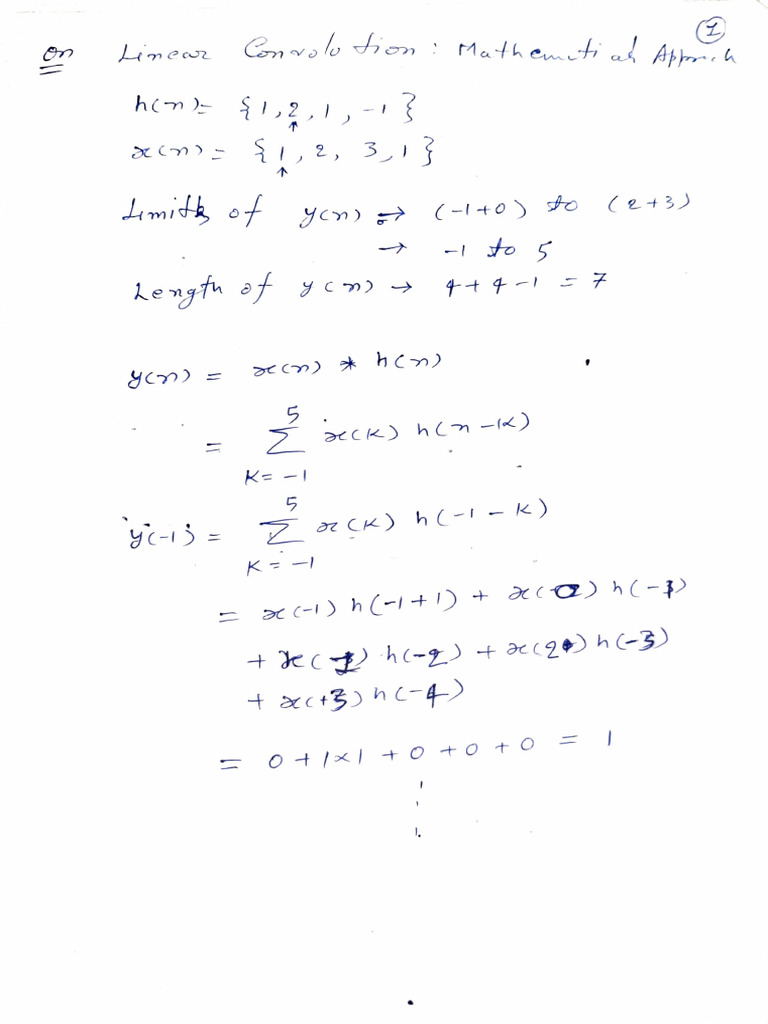 ①
On Linear Convolution: Mathematical Approach
h(n) = {1, 2, 1, -1}
↑
x(n) = {1, 2, 3, 1}
↑
Limits of y(n) → (-1+0) to (2+3)
→ -1 to 5
Length of y(n) → 4+4-1 = 7
y(n) = x(n) * h(n)
5
= Σ x(k) h(n-k)
K=-1
5
y(-1) = Σ x(k) h(-1-k)
K=-1
= x(-1) h(-1+1) + x(0) h(-1)
+ x(1) h(-2) + x(2) h(-3)
+ x(+3) h(-4)
= 0 + 1×1 + 0 + 0 + 0 = 1